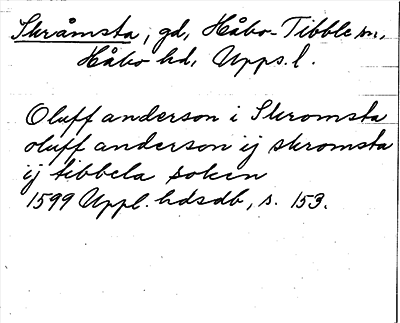 Skråmsta, gd, Håbo-Tibble sn,
Håbo hd, Upps.l.
Oluff anderson i Skromsta
oluff anderson ij skromsta
ij tibbela soken
1599 Uppl. hdsdb, s. 153.